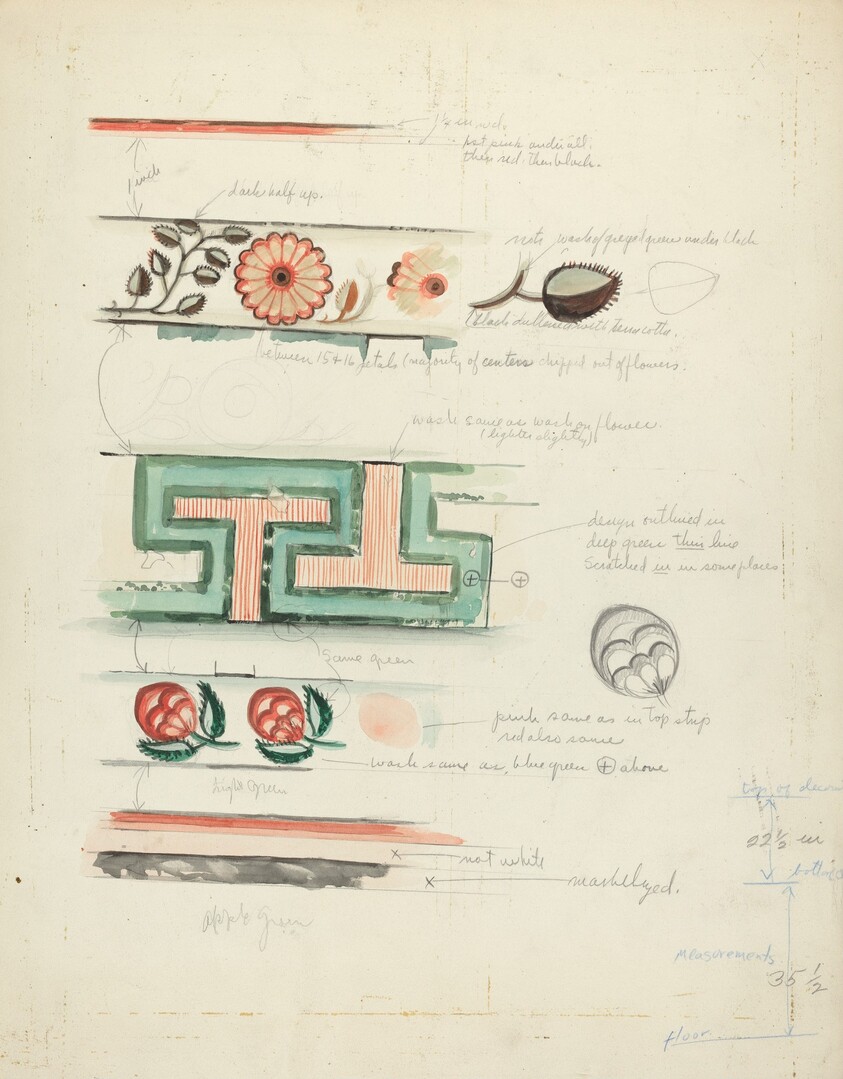 1st pink under all.
then red. then black.
1 inch
dark half up.
note wash of greyed green under black
(black dullened with terra cotta.
between 15 + 16 petals (majority of centers chipped out of flowers.
wash same as wash on flower.
(lighter slightly)
design outlined in
deep green thin line
Scratched in in some places
same green
pink same as in top strip
red also same
wash same as blue green ⊕ above
Light Green
top of
22 1/2 in
not white
marbelized.
apple green
measurements
35 1/2
floor